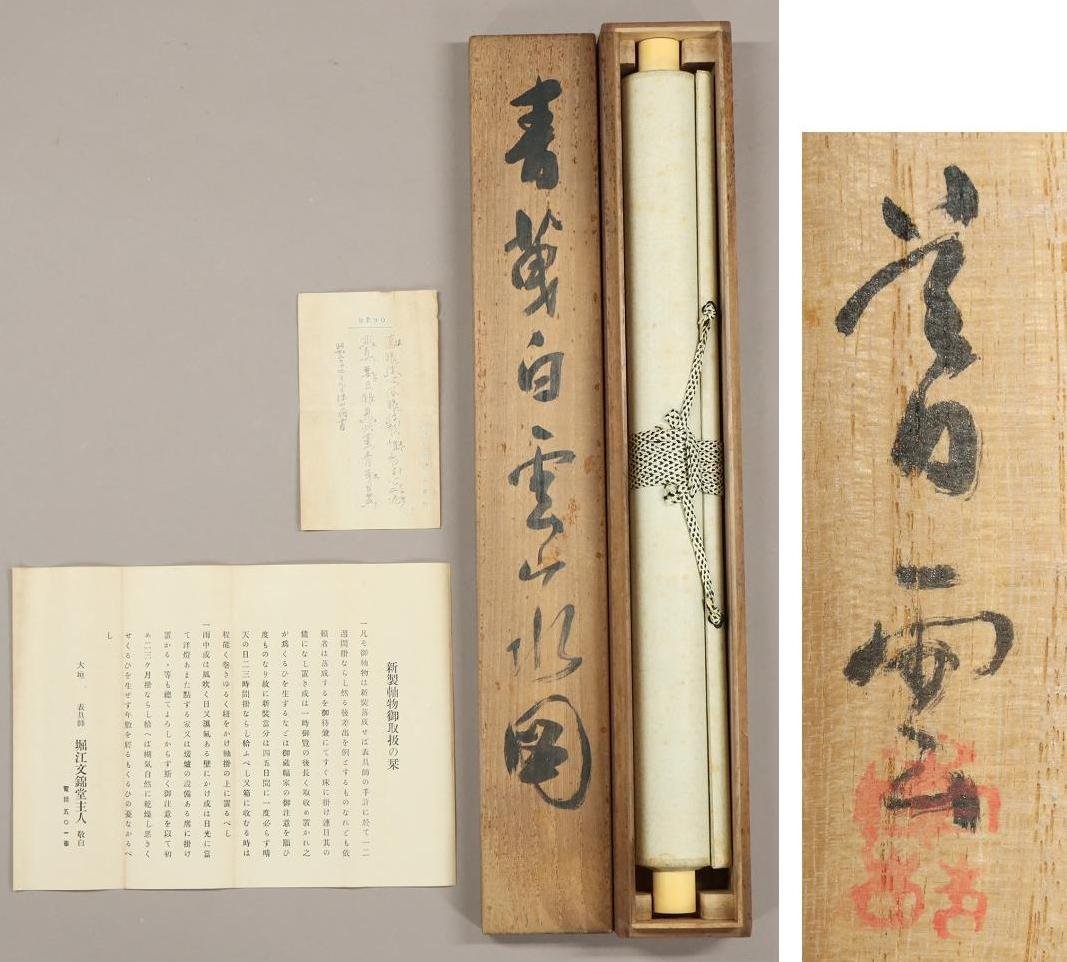 青峩白雲山水図
雲
新製軸物御取扱の栞
一凡そ御軸物は新裝落成せば表具師の手許に於て一二
週間掛ならし然る後差出を例とするものなれども依
頼者は落成するを御待兼にてすぐ床に掛け連日其の
儘になし置き或は一時御覽の後長く取收め置かれ之
が爲くるひを生ずるなどは御藏幅家の御注意を願ひ
度ものなり故に新裝當分は四五日間に一度必らず晴
天の日二三時間掛ならし給ふべし又箱に收むる時は
程能く卷きゆるく紐をかけ軸掛の上に置るべし
一雨中或は風吹く日又濕氣ある壁にかけ或は日光に當
て洋燈あまた點ずる家又は煖爐の設備ある席に掛け
置かるゝ等も總てよろしからず斯く御注意を以て初
め二三ケ月掛ならし給へば糊氣自然に乾燥し惡きく
せくるひを生ぜず年數を經るもくるひの憂なかるべ
し
大垣 表具師 堀江文錦堂主人 敬白
電話五〇一番